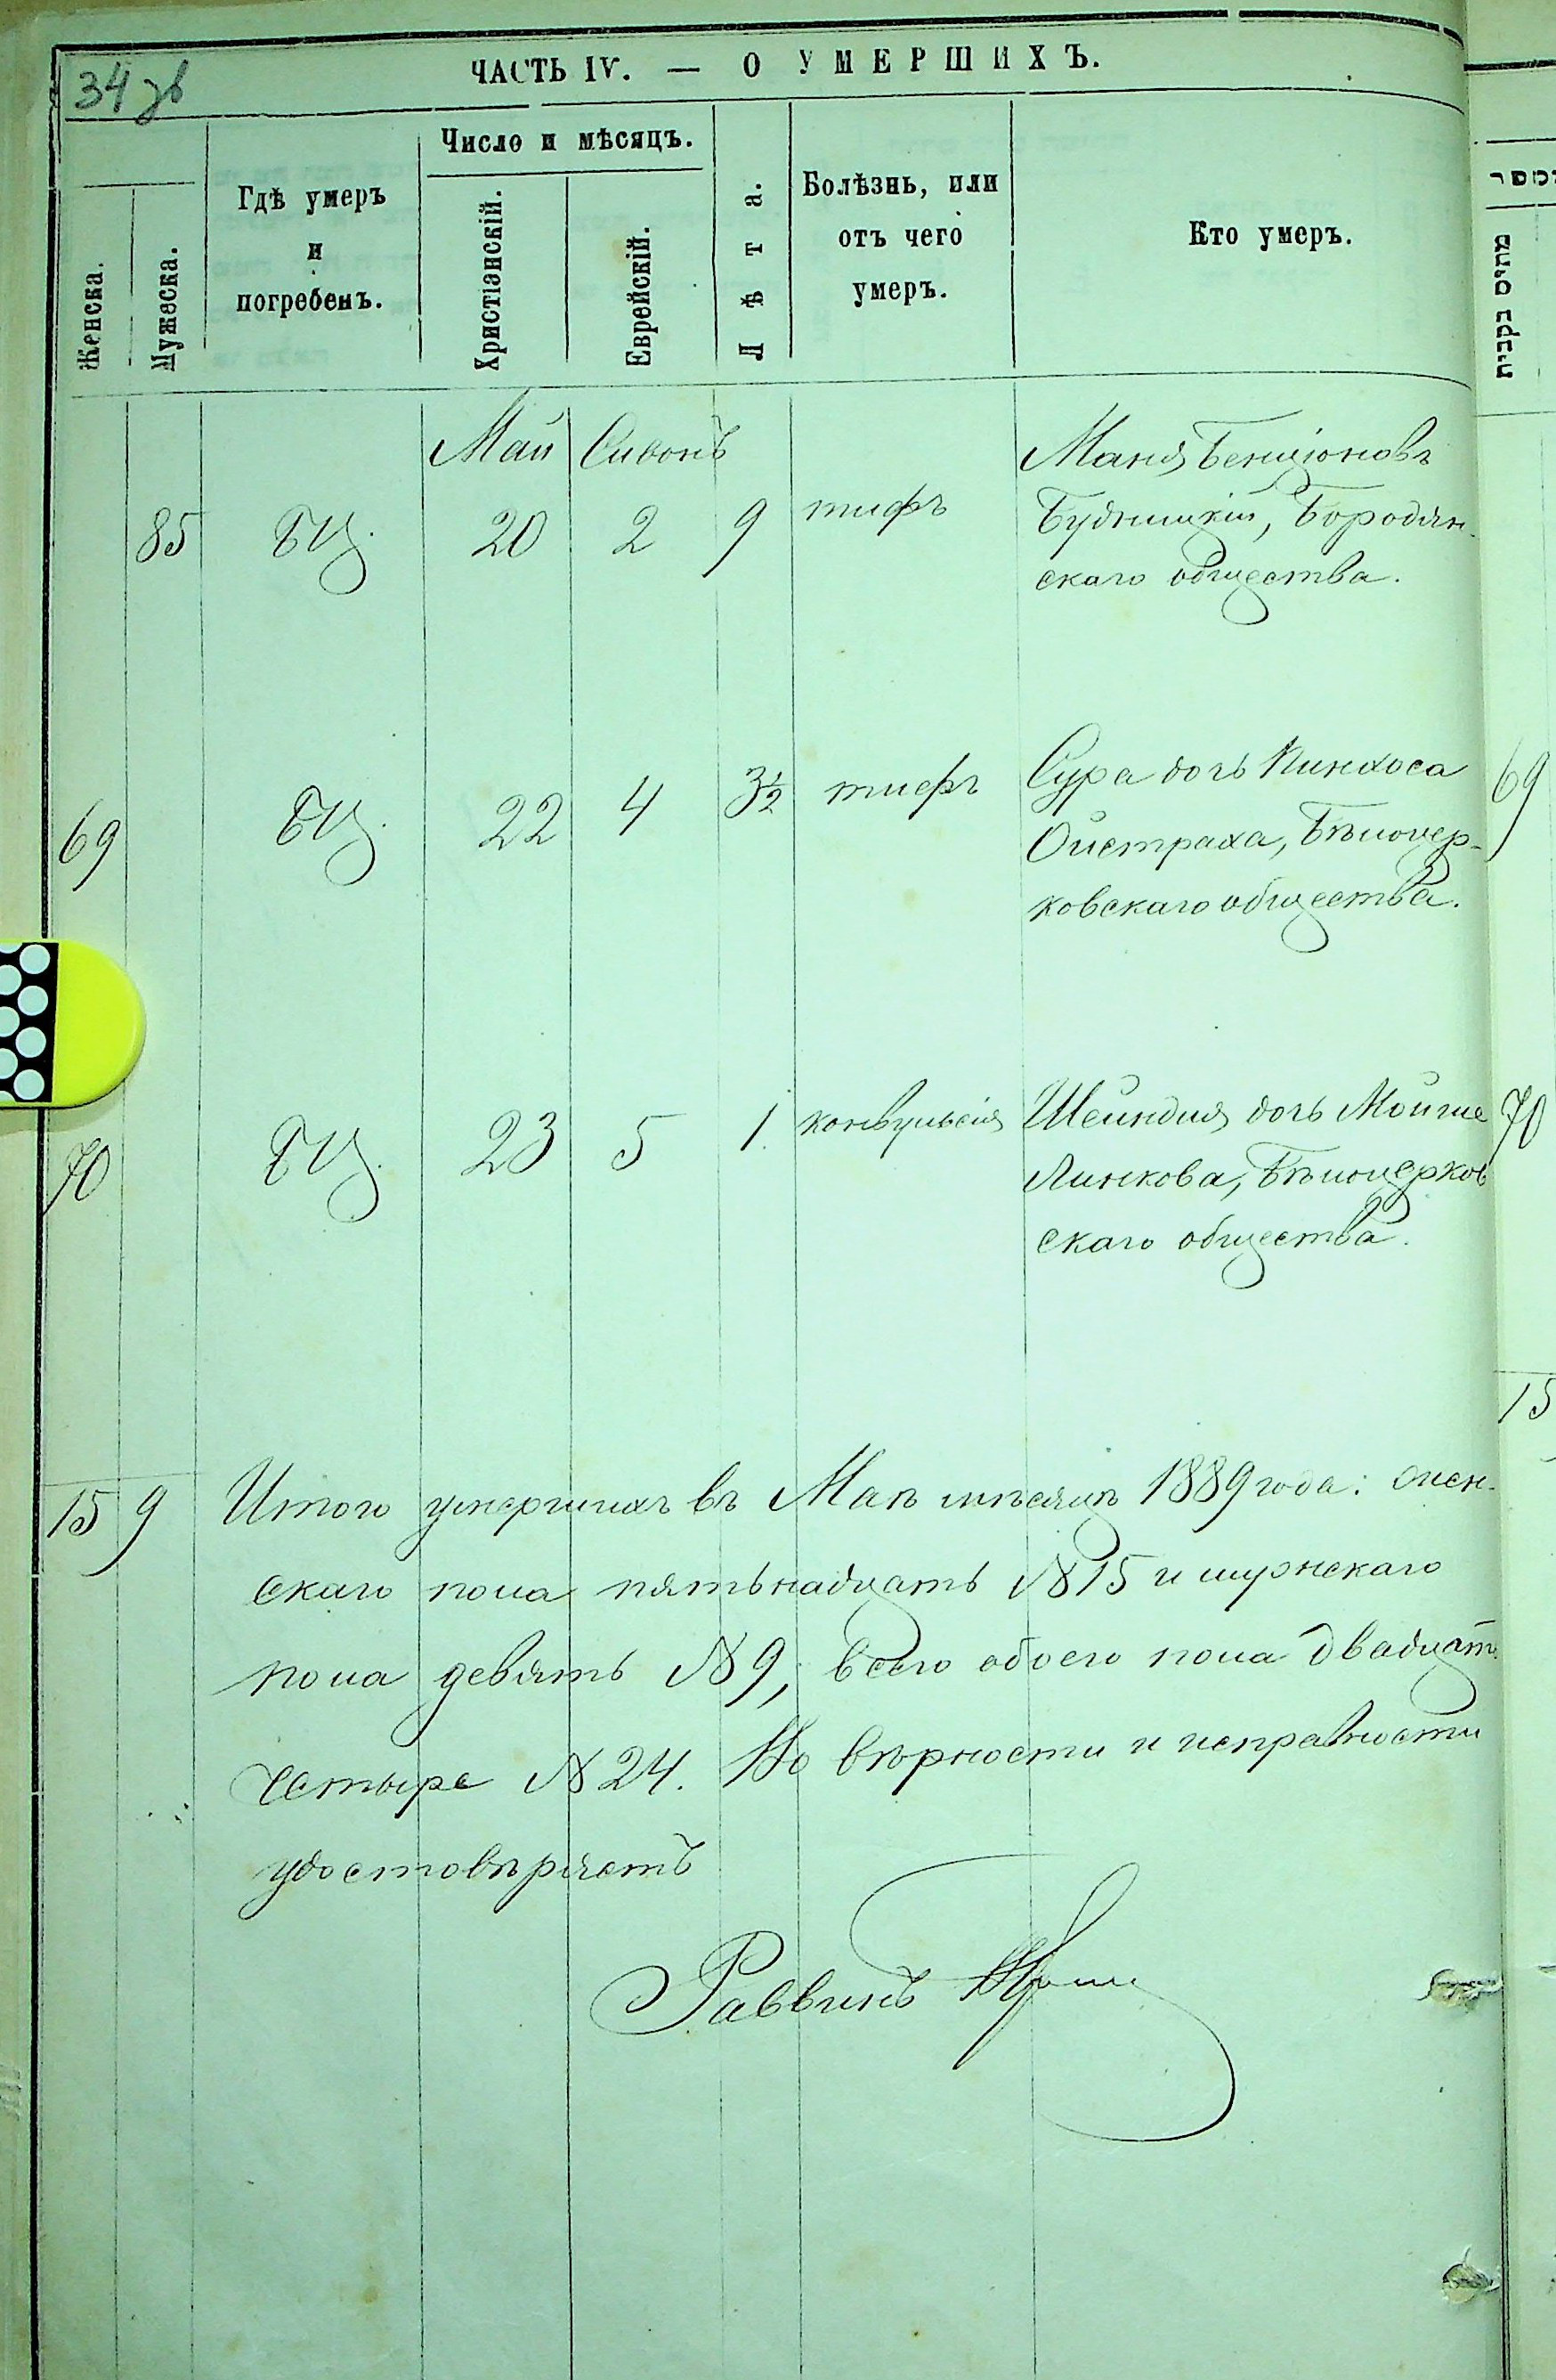 34 зв
ЧАСТЬ IV. — О УМЕРШИХЪ.
Женска.
Мужеска.
Гдѣ умеръ
и
погребенъ.
Число и мѣсяцъ.
Христіанскій.
Еврейскій.
Лѣта.
Болѣзнь, или
отъ чего
умеръ.
Кто умеръ.
Май Сивонъ
85 БЦ. 20 2 9 тифъ Маня Бенціоновъ
Будницкій, Бородян-
скаго общества.
69 БЦ. 22 4 3½ тифъ Сура дочь Пинхоса
Ойстраха, Бѣлоцер-
ковскаго общества.
70 БЦ. 23 5 1. конвульсія Шейндля дочь Мойше
Линкова, Бѣлоцерков
скаго общества.
15 9 Итого умершихъ въ Маѣ мѣсяцѣ 1889 года: жен-
скаго пола пятьнадцать №15 и мужскаго
пола девять №9, всего обоего пола двадцать
четыре №24. Но вѣрности и исправности
удостовѣряетъ
Раввинъ
מספר
מתים נקבות
69
70
15